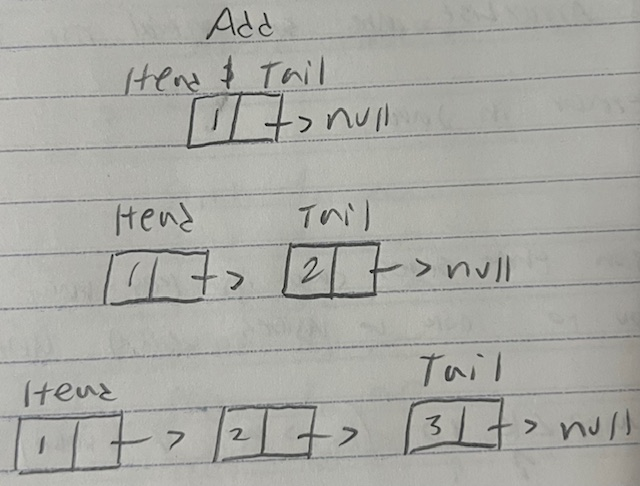 Add
Head & Tail
1 -> null
Head Tail
1 -> 2 -> null
Head Tail
1 -> 2 -> 3 -> null